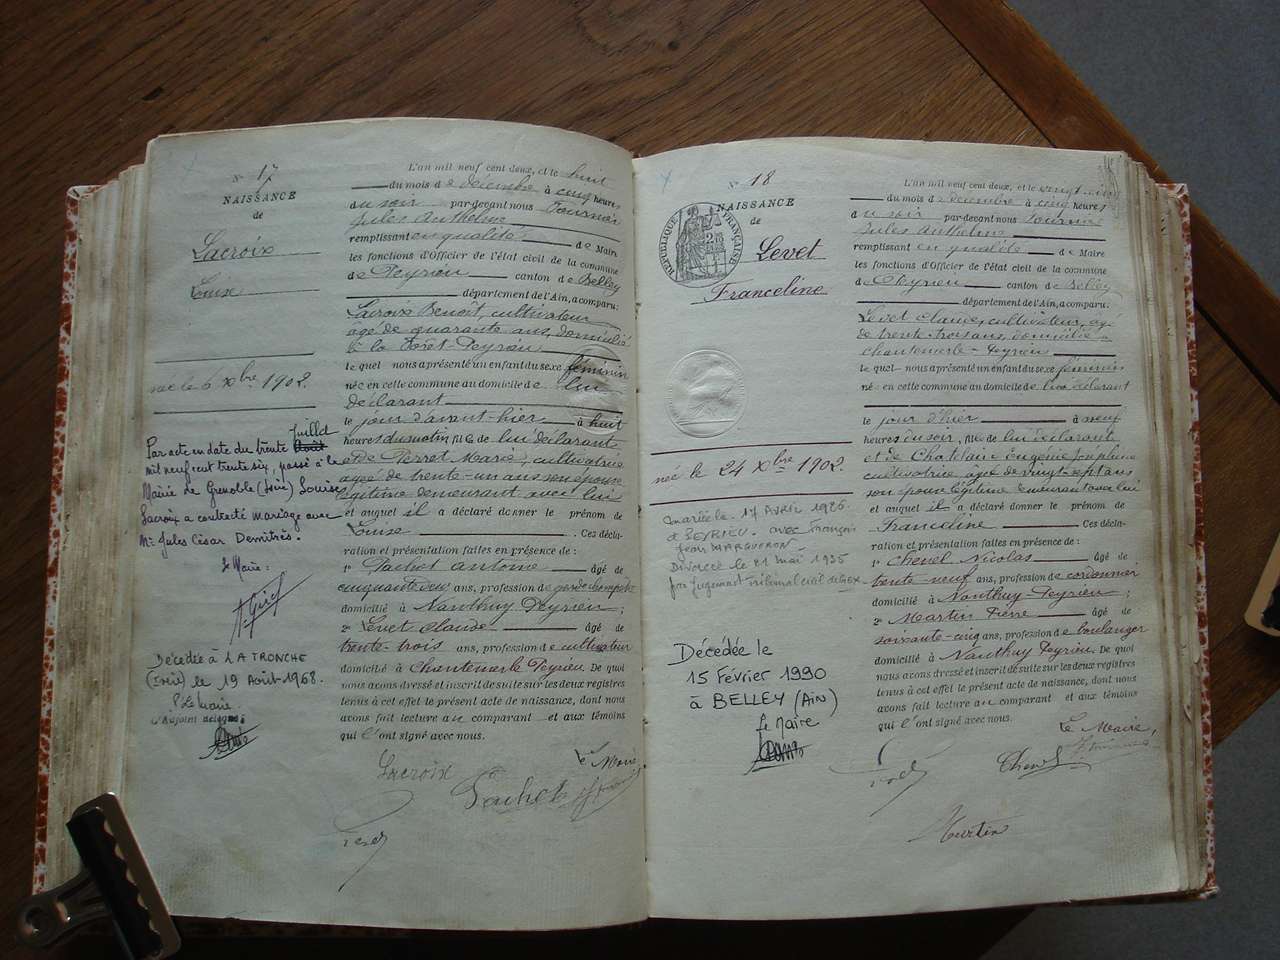 N° 17
NAISSANCE
de
Lacroix
Louise
née le 6 Xbre 1902.
Par acte en date du trente juillet
mil neuf cent trente six, passé à la
Mairie de Grenoble (Isère) Louise
Lacroix a contracté mariage avec
Mr Jules César Demitrès.
Le Maire:
Décédée à LA TRONCHE
(Isère) le 19 Août 1968.
P. Le Maire
L'Adjoint délégué
L'an mil neuf cent deux, et le huit
du mois de décembre à cinq heures
du soir par-devant nous Fournier
Jules Anthelme
remplissant en qualité de Maire
les fonctions d'Officier de l'état civil de la commune
de Peyrieu canton de Belley
département de l'Ain, a comparu:
Lacroix Benoît, cultivateur
âgé de quarante ans, domicilié
à la Forêt-Peyrieu
le quel nous a présenté un enfant du sexe féminin
née en cette commune au domicile de lui
déclarant
le jour d'avant-hier à huit
heures du matin, fille de lui déclarant
et de Perret Marie, cultivatrice
âgée de trente-un ans son épouse
légitime demeurant avec lui
et auquel il a déclaré donner le prénom de
Louise Ces décla-
ration et présentation faites en présence de:
1° Pachet Antoine âgé de
cinquante deux ans, profession de garde champêtre
domicilié à Nanthuy Peyrieu;
2° Levet Claude âgé de
trente-trois ans, profession de cultivateur
domicilié à Chantemerle Peyrieu De quoi
nous avons dressé et inscrit de suite sur les deux registres
tenus à cet effet le présent acte de naissance, dont nous
avons fait lecture au comparant et aux témoins
qui l'ont signé avec nous.
Le Maire,
Lacroix
Pachet
N° 18
NAISSANCE
de
Levet
Franceline
RÉPUBLIQUE FRANÇAISE
née le 24 Xbre 1902.
mariée le 17 Avril 1926
à PEYRIEU avec François
Jean MARGUERON
Divorcée le 21 mai 1935
par jugement tribunal civil de GEX
Décédée le
15 Février 1990
à BELLEY (Ain)
Le Maire
L'an mil neuf cent deux, et le vingt cinq
du mois de décembre à cinq heures
du soir par-devant nous Fournier
Jules Anthelme
remplissant en qualité de Maire
les fonctions d'Officier de l'état civil de la commune
de Peyrieu canton de Belley
département de l'Ain, a comparu:
Levet Claude, cultivateur, âgé
de trente-trois ans, domicilié à
Chantemerle-Peyrieu
le quel nous a présenté un enfant du sexe féminin
née en cette commune au domicile de lui déclarant
le jour d'hier à neuf
heures du soir, fille de lui déclarant
et de Chatelain Eugénie Joséphine
cultivatrice âgée de vingt-sept ans
son épouse légitime demeurant avec lui
et auquel il a déclaré donner le prénom de
Franceline Ces décla-
ration et présentation faites en présence de:
1° Chenel Nicolas âgé de
trente-neuf ans, profession de cordonnier
domicilié à Nanthuy Peyrieu;
2° Martin Pierre âgé de
soixante-cinq ans, profession de boulanger
domicilié à Nanthuy Peyrieu. De quoi
nous avons dressé et inscrit de suite sur les deux registres
tenus à cet effet le présent acte de naissance, dont nous
avons fait lecture au comparant et aux témoins
qui l'ont signé avec nous.
Le Maire,
Chenel
Martin